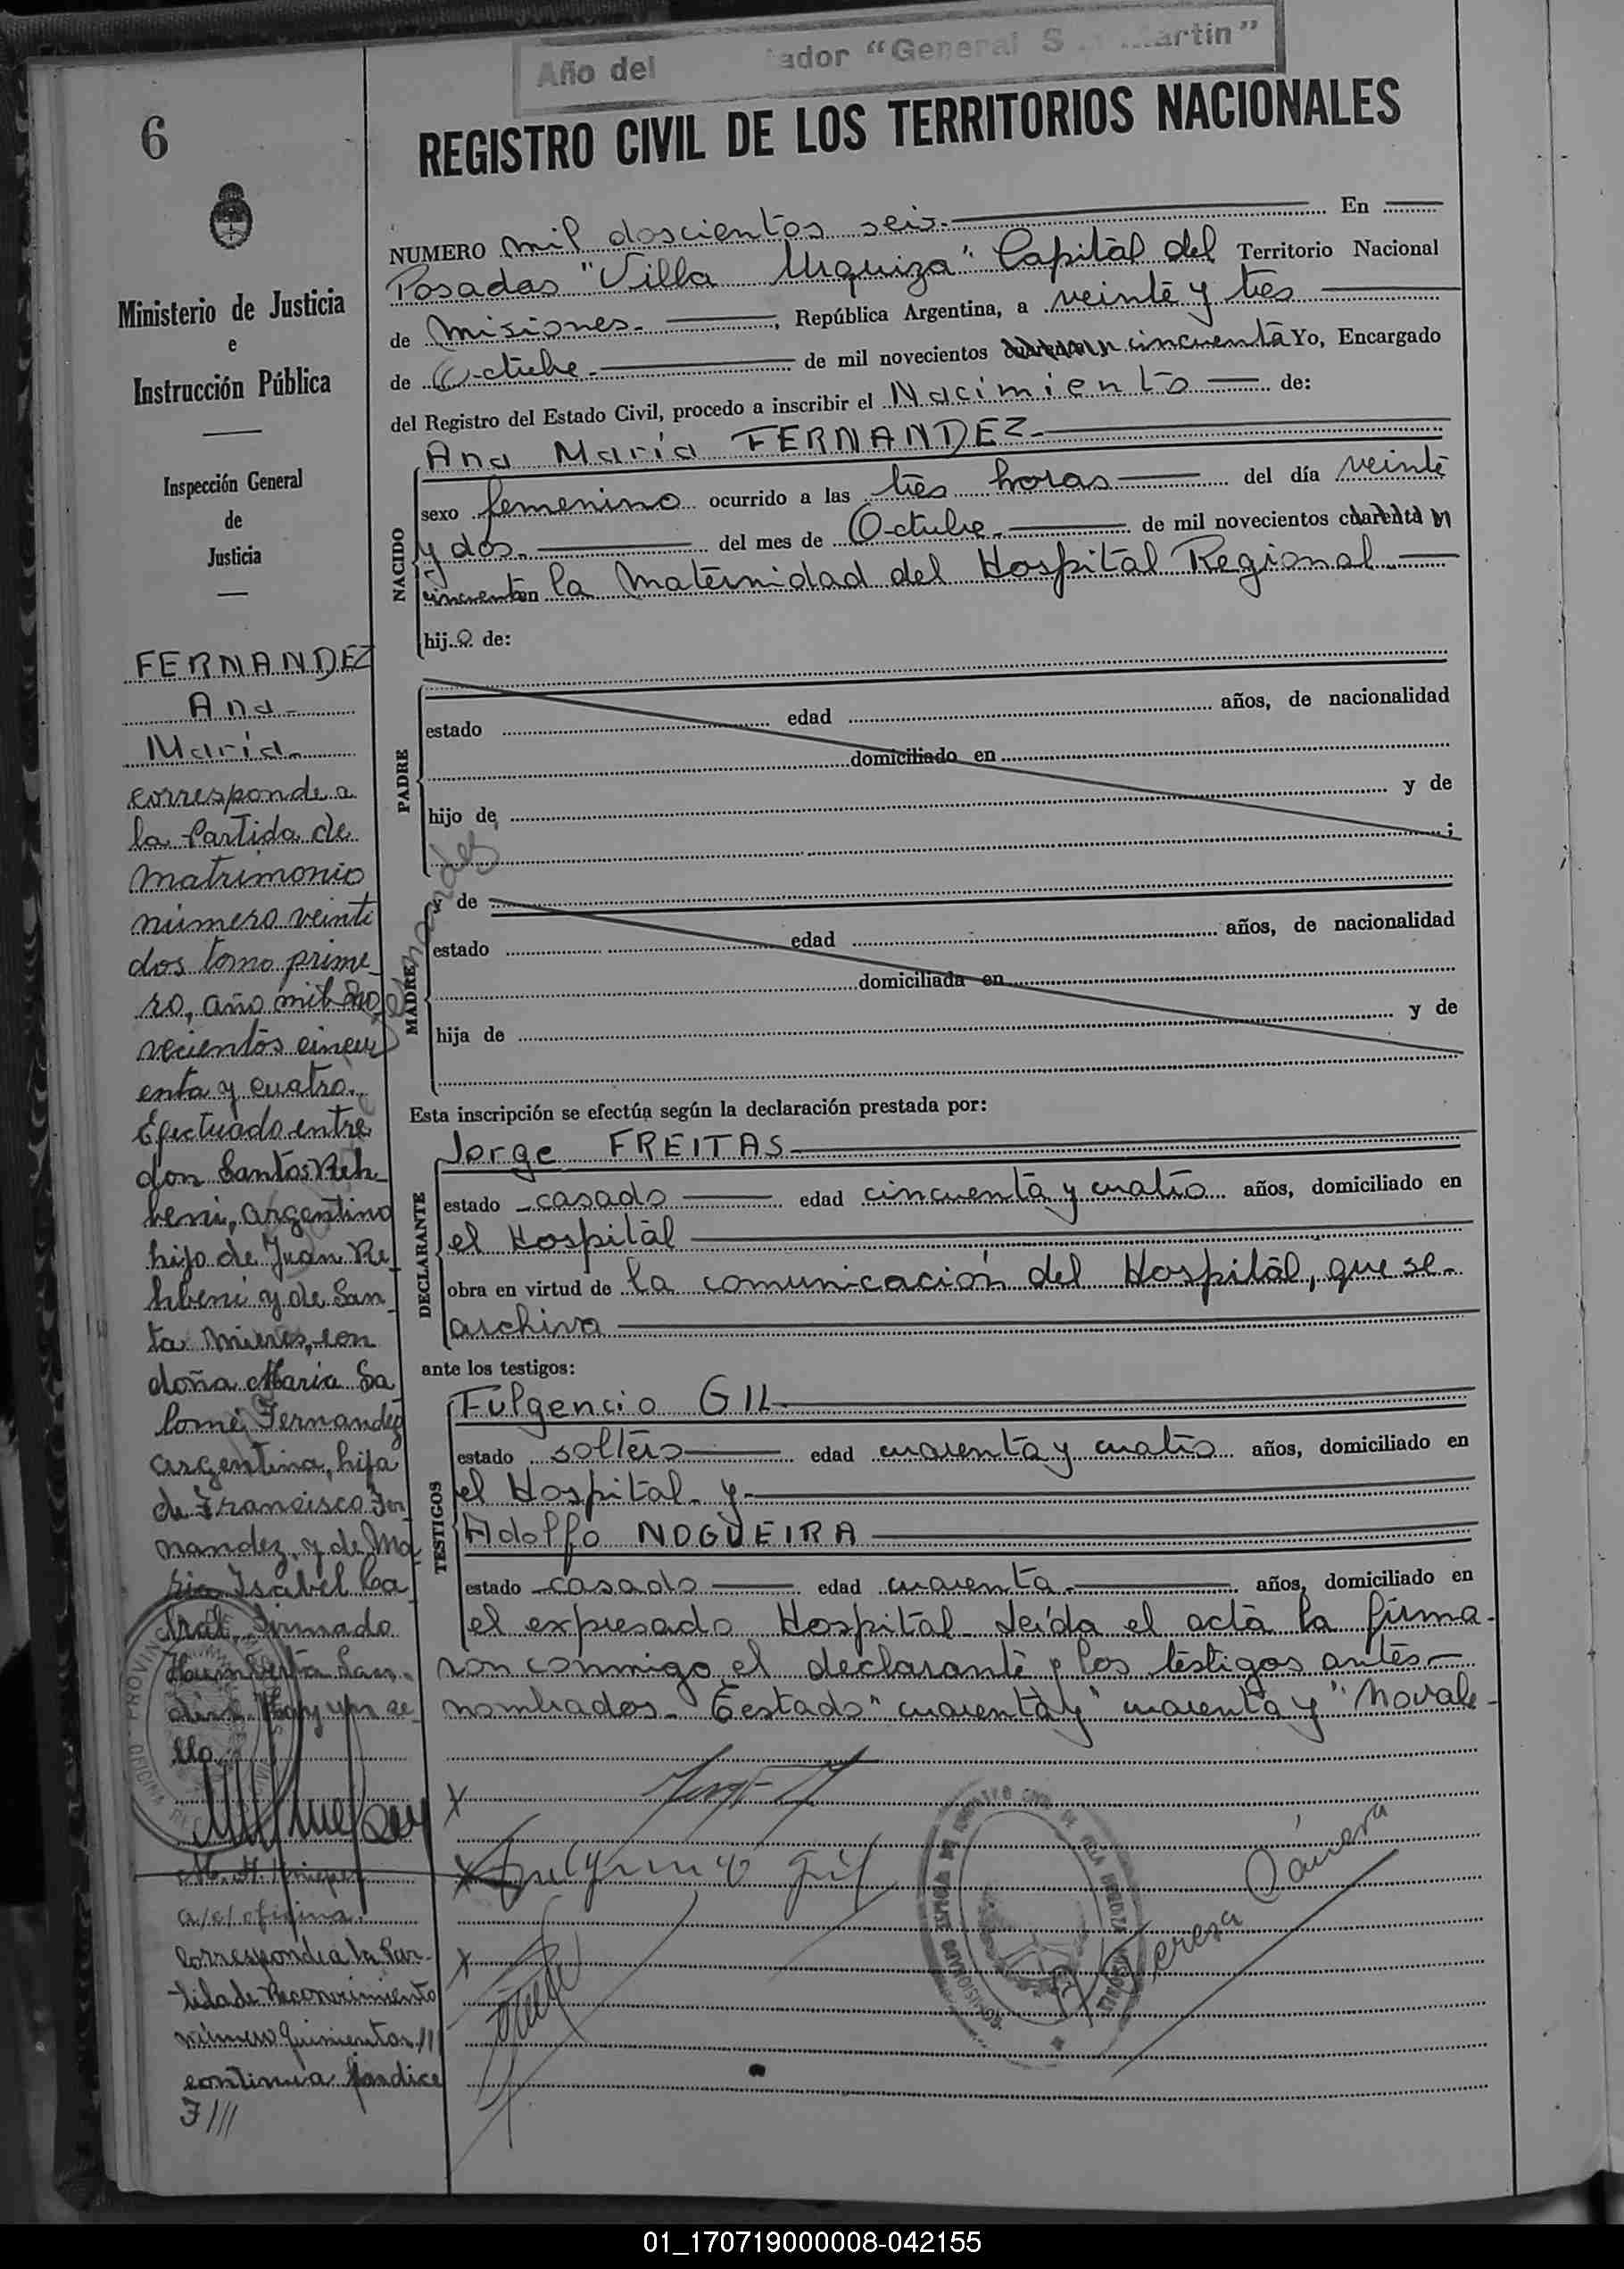 Año del ador "General S Martín"
6
REGISTRO CIVIL DE LOS TERRITORIOS NACIONALES
NUMERO mil doscientos seis.- En
Posadas "Villa Urquiza" Capital del Territorio Nacional
de Misiones.- , República Argentina, a veinte y tres
de Octubre.- de mil novecientos cincuenta Yo, Encargado
del Registro del Estado Civil, procedo a inscribir el Nacimiento de:
Ana María FERNANDEZ.-
NACIDO
sexo femenino ocurrido a las tres horas del día veinte
y dos.- del mes de Octubre.- de mil novecientos cuarenta y
cincuenta en la Maternidad del Hospital Regional.-
hij.a de:
PADRE
estado edad años, de nacionalidad
domiciliado en
hijo de y de
;
MADRE
y de
estado edad años, de nacionalidad
domiciliada en
hija de y de
Esta inscripción se efectúa según la declaración prestada por:
DECLARANTE
Jorge FREITAS
estado casado edad cincuenta y cuatro años, domiciliado en
el Hospital
obra en virtud de la comunicación del Hospital, que se-
archiva
ante los testigos:
TESTIGOS
Fulgencio GIL
estado soltero edad cuarenta y cuatro años, domiciliado en
el Hospital y-
Adolfo NOGUEIRA
estado casado edad cuarenta.- años, domiciliado en
el expresado Hospital Leída el acta la firma-
ron conmigo el declarante y los testigos antes-
nombrados.- Testado "cuarenta y" "cuarenta y" No vale-
Fulgencio Gil
Teresa
Ministerio de Justicia
e
Instrucción Pública
Inspección General
de
Justicia
FERNANDEZ
Ana-
María-
corresponde a
la Partida de
matrimonio
número veinti
dos tomo prime_
ro, año mil no
vecientos cincu
enta y cuatro.
Efectuado entre
don Santos Reh_
beni, argentino
hijo de Juan Re_
hbeni y de San_
ta Mieres, con
doña María Sa
lomé Fernandez
argentina, hija
de Francisco Fer
nandez y de Ma
ria Isabel Ca
bral. Firmado
Hay un se_
llo.
a/c/ oficina.
Corresponde a la Par-
tida de Reconocimiento
número quinientos ///
continua
///
01_170719000008-042155